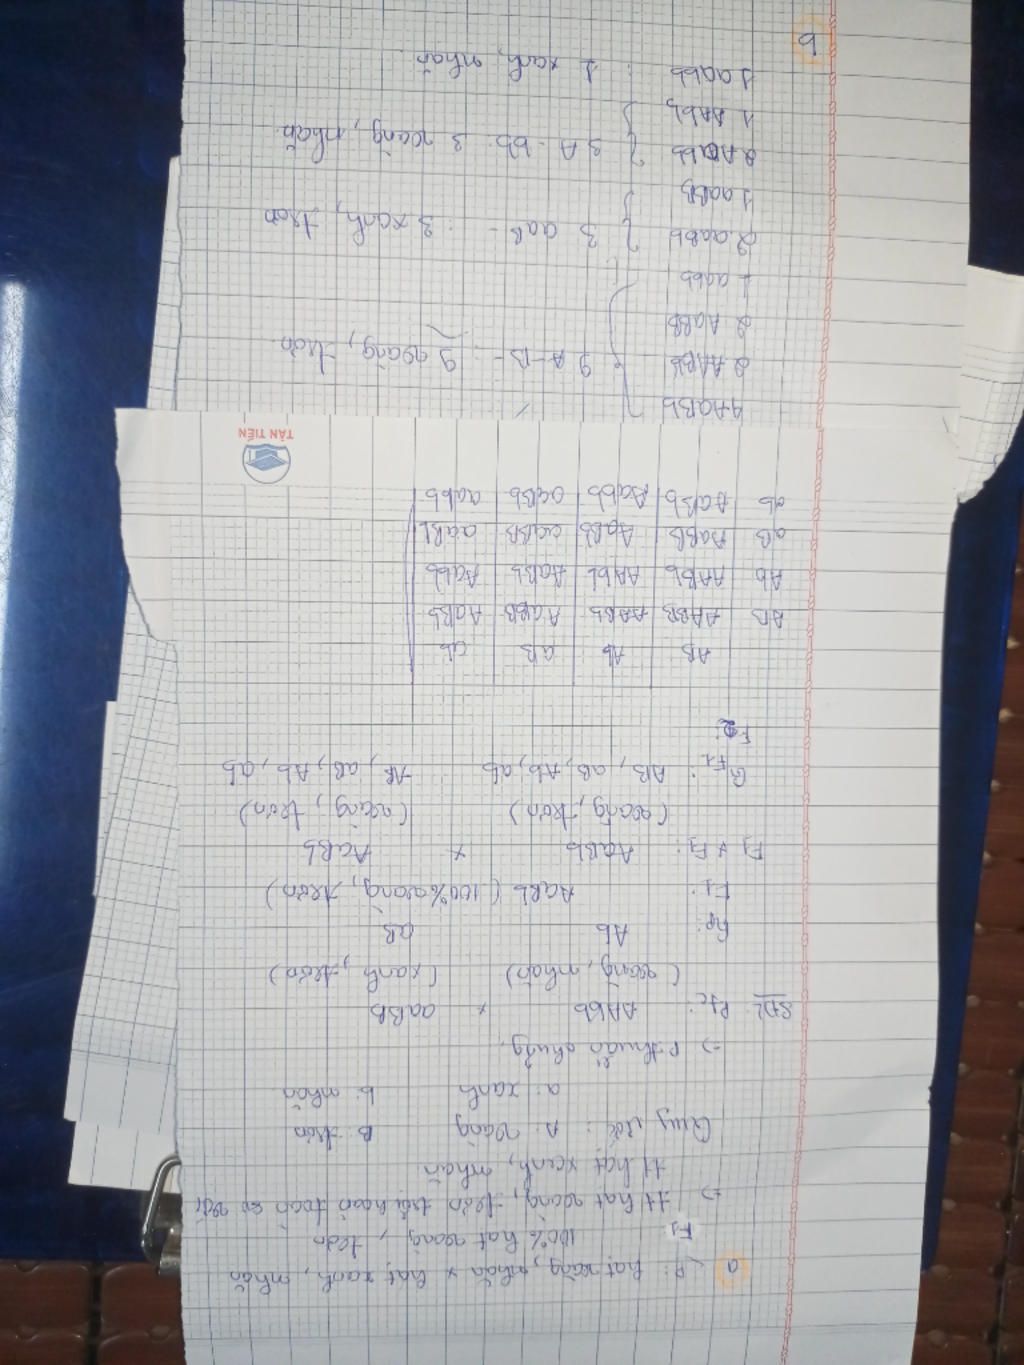 a) P: hạt vàng, nhăn x hạt xanh, nhăn
F1 100% hạt vàng, trơn
=> tt hạt vàng, trơn trội hoàn toàn so với
tt hạt xanh, nhăn
Quy ước: A: vàng B: trơn
a: xanh b: nhăn
=> P thuần chủng
SĐL: Ptc: AAbb x aaBB
(vàng, nhăn) (xanh, trơn)
Gp: Ab aB
F1: AaBb (100% vàng, trơn)
F1 x F1: AaBb x AaBb
(vàng, trơn) (vàng, trơn)
GF1: AB, aB, Ab, ab AB, aB, Ab, ab
F2:
AB Ab aB ab
AB AABB AABb AaBB AaBb
Ab AABb AAbb AaBb Aabb
aB AaBB AaBb aaBB aaBb
ab AaBb Aabb aaBb aabb
TÂN TIẾN
4 AaBb
2 AABb 9 A-B- : 9 vàng, trơn
2 AaBB
1 aabb
2 aaBb 3 aaB- : 3 xanh, trơn
1 aaBB
2 Aabb 3 A-bb : 3 vàng, nhăn
1 AAbb
1 aabb : 1 xanh, nhăn
b